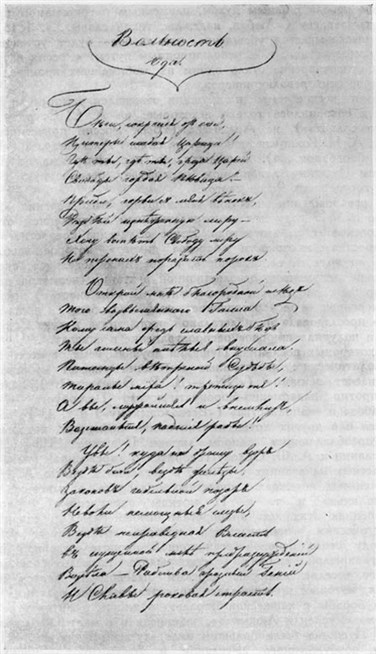 Вольность
Ода
Бѣги, сокройся отъ очей,
Цитеры слабая Царица!
Гдѣ ты, гдѣ ты, гроза Царей
Свободы гордая пѣвица? —
Приди, сорви съ меня вѣнокъ,
Разбей изнѣженную лиру —
Хочу воспѣть Свободу міру
На тронахъ поразить порокъ
Открой мнѣ благородный слѣдъ
Того возвышеннаго Галла
Кому сама средь славныхъ бѣдъ
Ты гимны смѣлые внушала.
Питомцы вѣтреной Судьбы,
Тираны міра! трепещите!
А вы, мужайтесь и внемлите,
Возстаньте, падшіе рабы!
Увы! куда ни брошу взоръ
Вездѣ бичи, вездѣ желѣзы,
Законовъ гибельной позоръ
Неволи немощныя слезы,
Вездѣ неправедная Власть
Въ сгущенной мглѣ предразсужденій
Возсѣла — Рабства грозный Геній
И Славы роковая страсть.